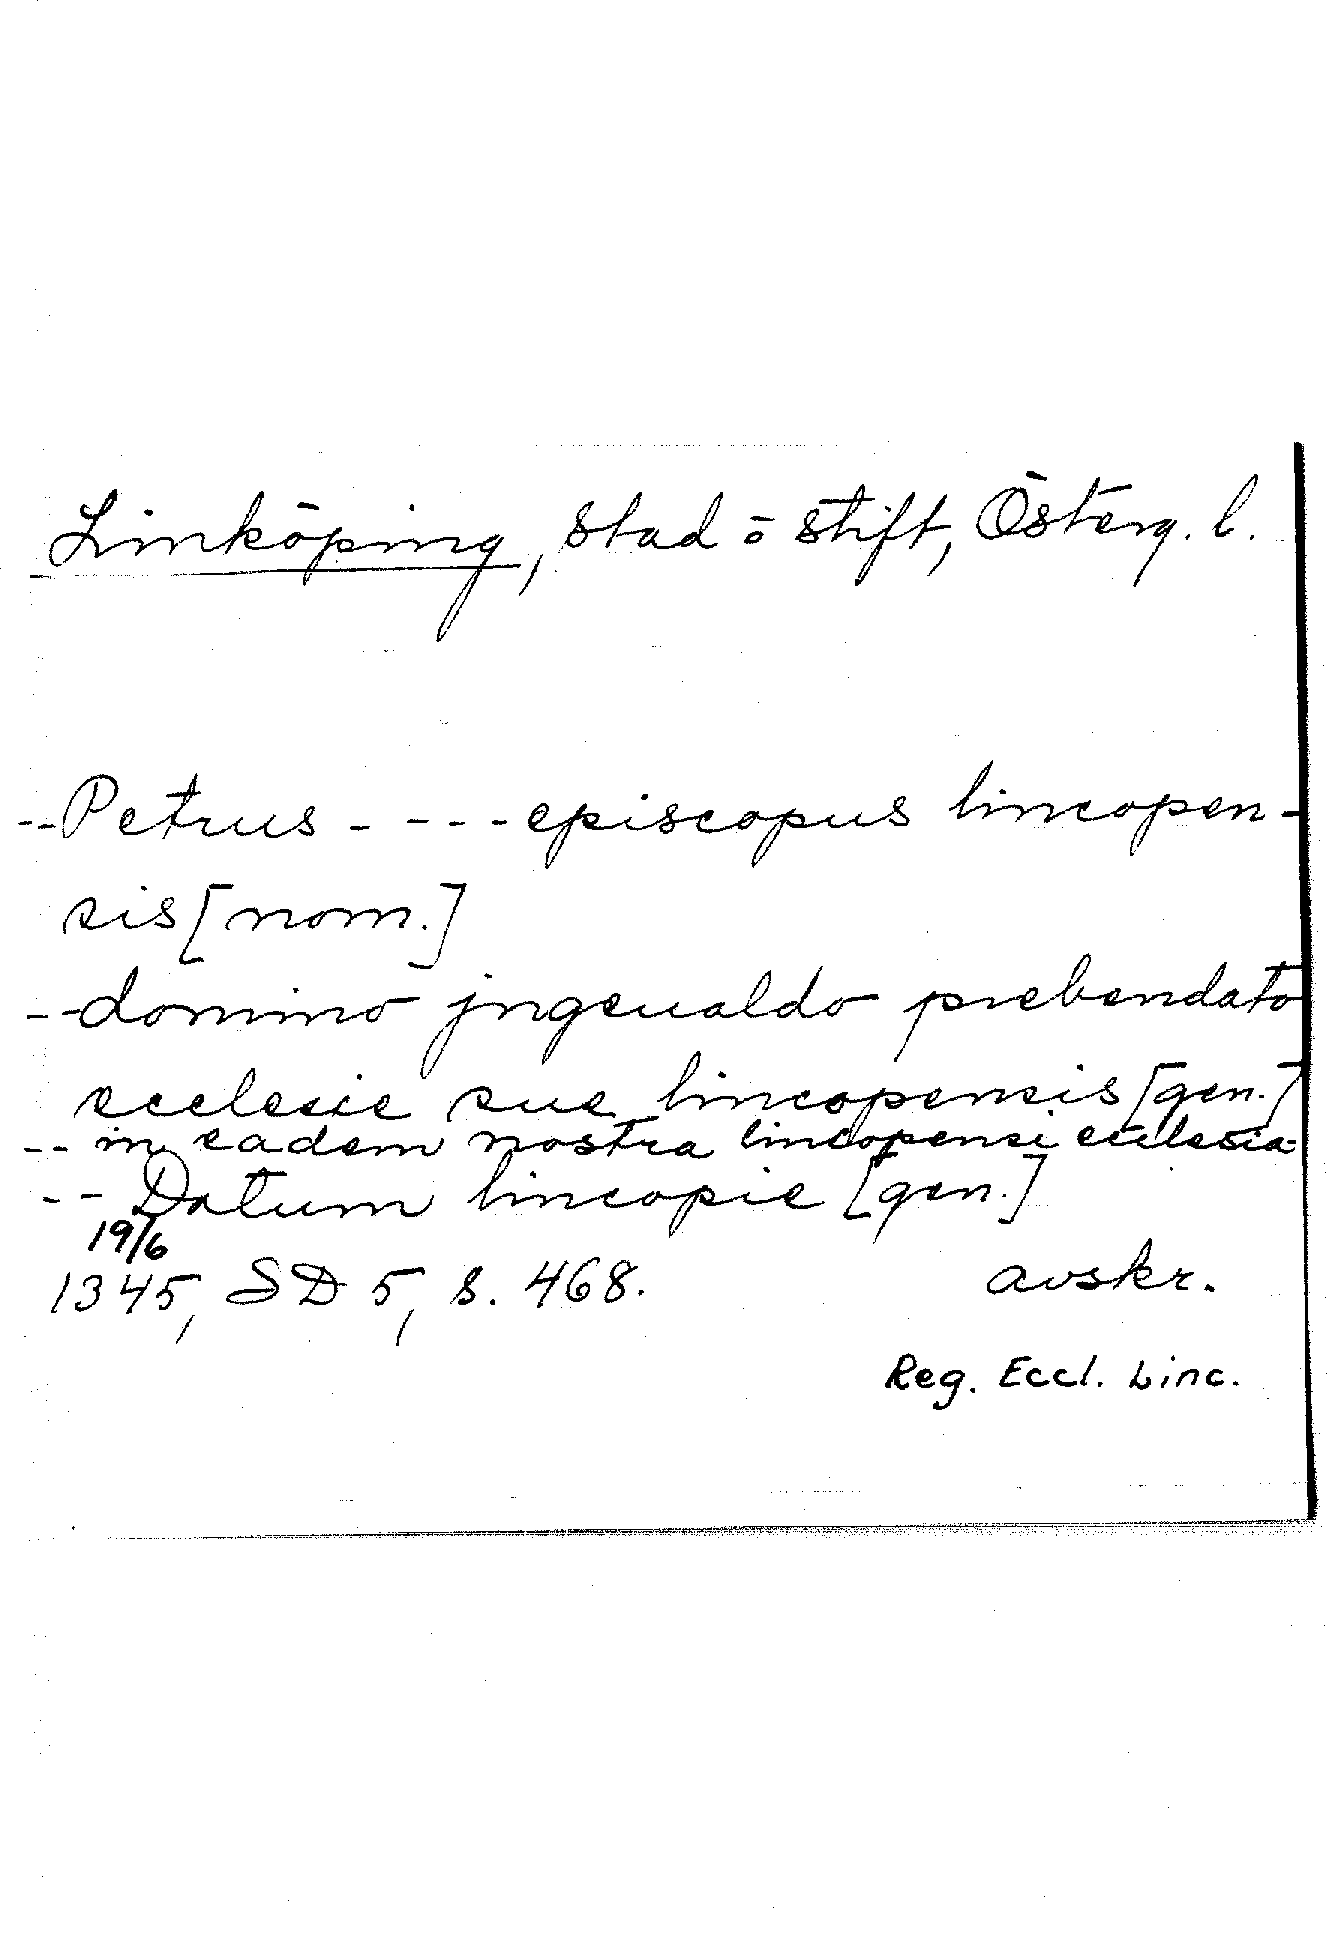 Linköping, stad o stift, Österg. l.
--Petrus - --- episcopus lincopen-
sis [nom.]
--domino jngeualdo prebendato
ecclesie sue lincopensis [gen.]
-- in eadem nostra lincopensi ecclesia-
-- Datum lincopie [gen.]
19/6
1345, SD 5, s. 468. avskr.
Reg. Eccl. Linc.